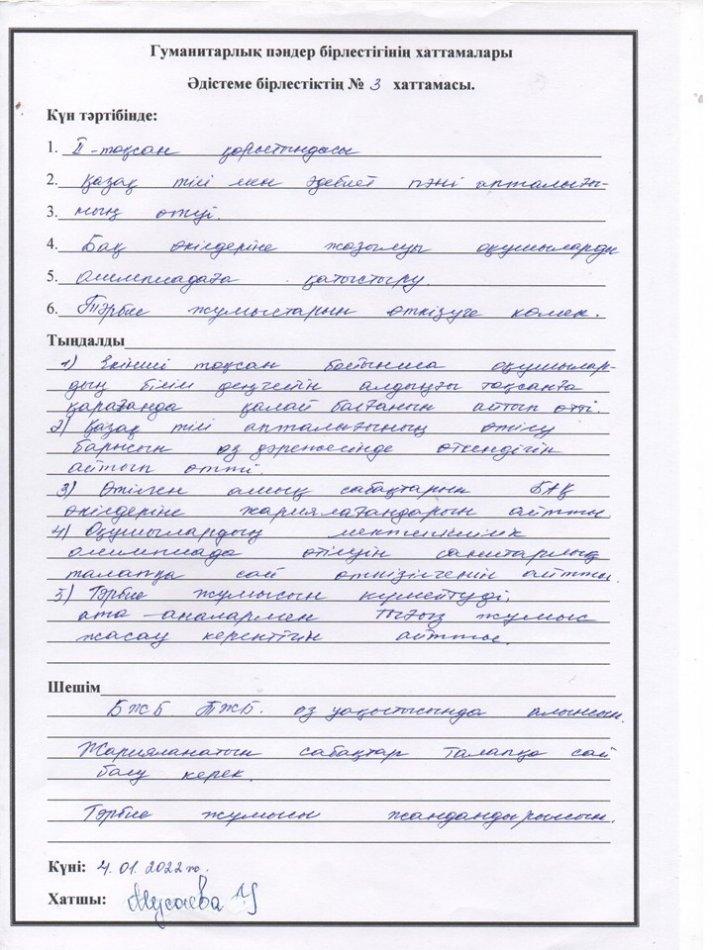 Гуманитарлық пәндер бірлестігінің хаттамалары
Әдістеме бірлестіктің № 3 хаттамасы.
Күн тәртібінде:
1. ІІ-тоқсан қорытындысы
2. Қазақ тілі мен әдебиет пәні апталығы-
3. ның өтуі.
4. Бақ өкілдеріне жазылуы оқушыларды
5. олимпиадаға қатыстыру.
6. Тәрбие жұмыстарын өткізуге көмек.
Тыңдалды
1) Екінші тоқсан бойынша оқушылар-
дың білім деңгейін алдыңғы тоқсанға
қарағанда қалай болғанын айтып өтті.
2) Қазақ тілі апталығының өтілу
барысын өз дәрежесінде өткендігін
айтып өтті.
3) Өтілген ашық сабақтарын БАҚ
өкілдеріне жариялағандарын айтты
4) Оқушылардың мектепішілік
олимпиада өтілуін санитарлық
талапқа сай өткізілгенін айтты.
5) Тәрбие жұмысын күшейтуді,
ата-аналармен тығыз жұмыс
жасау керектігін айтты.
Шешім
БЖБ ТЖБ. өз уақытысында алынсын.
Жарияланатын сабақтар талапқа сай
болу керек.
Тәрбие жұмысы жандандырылсын.
Күні: 4.01.2022ж.
Хатшы: Мусаева